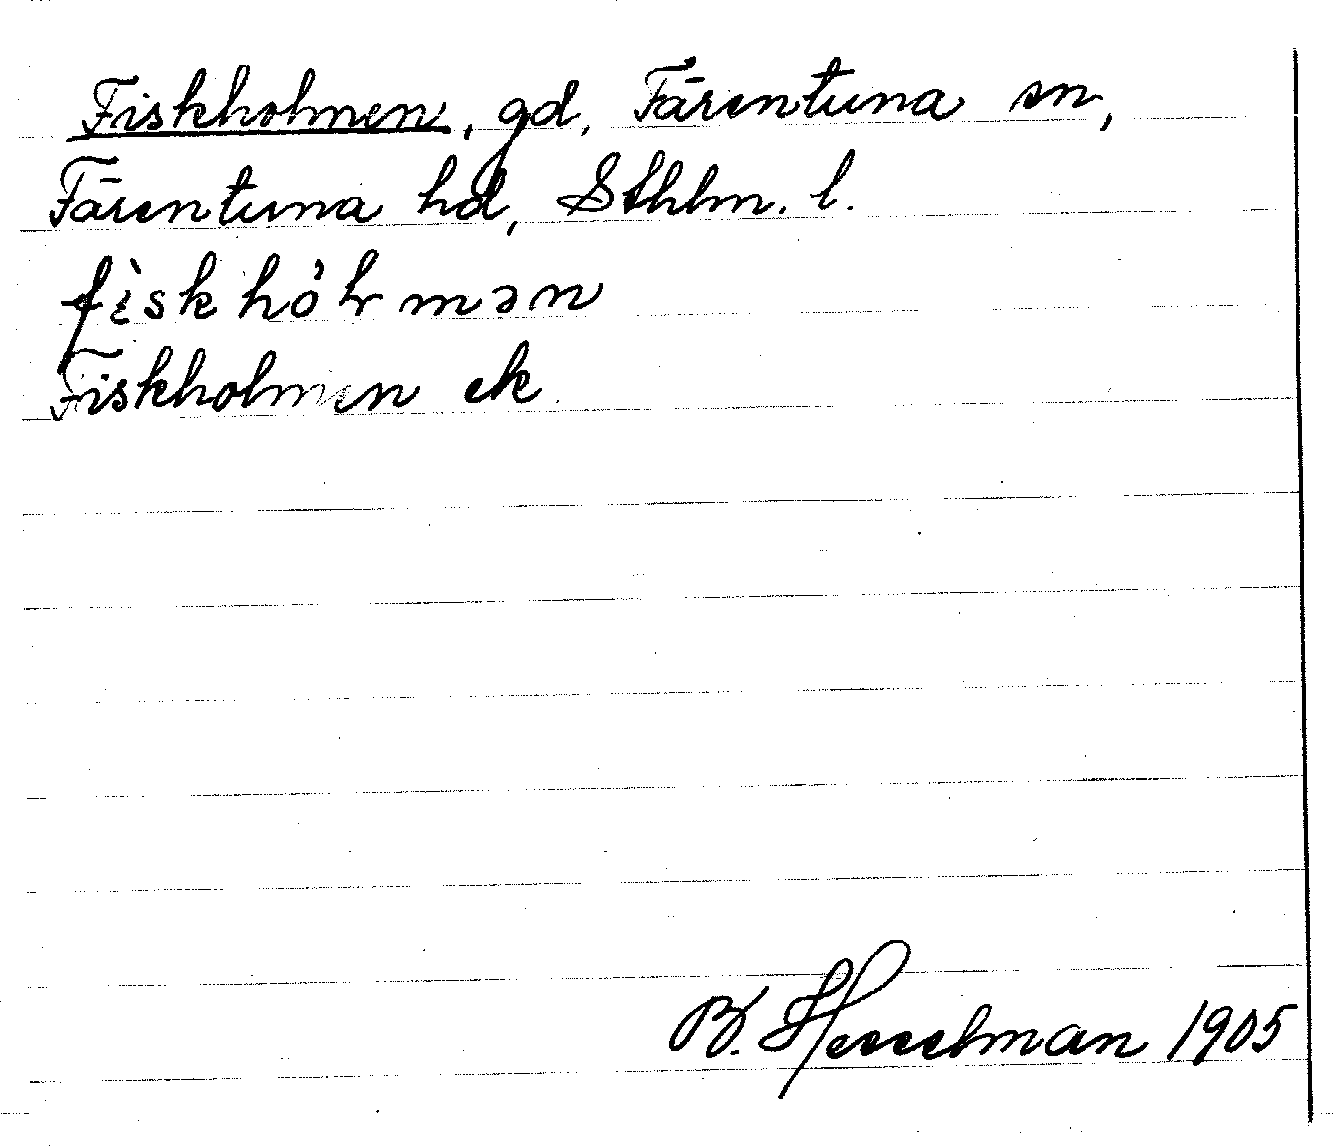 Fiskholmen, gd, Färentuna sn,
Färentuna hd, Sthlm. l.
fìskhò̇ɬmən
Fiskholmen ek
B. Hesselman 1905